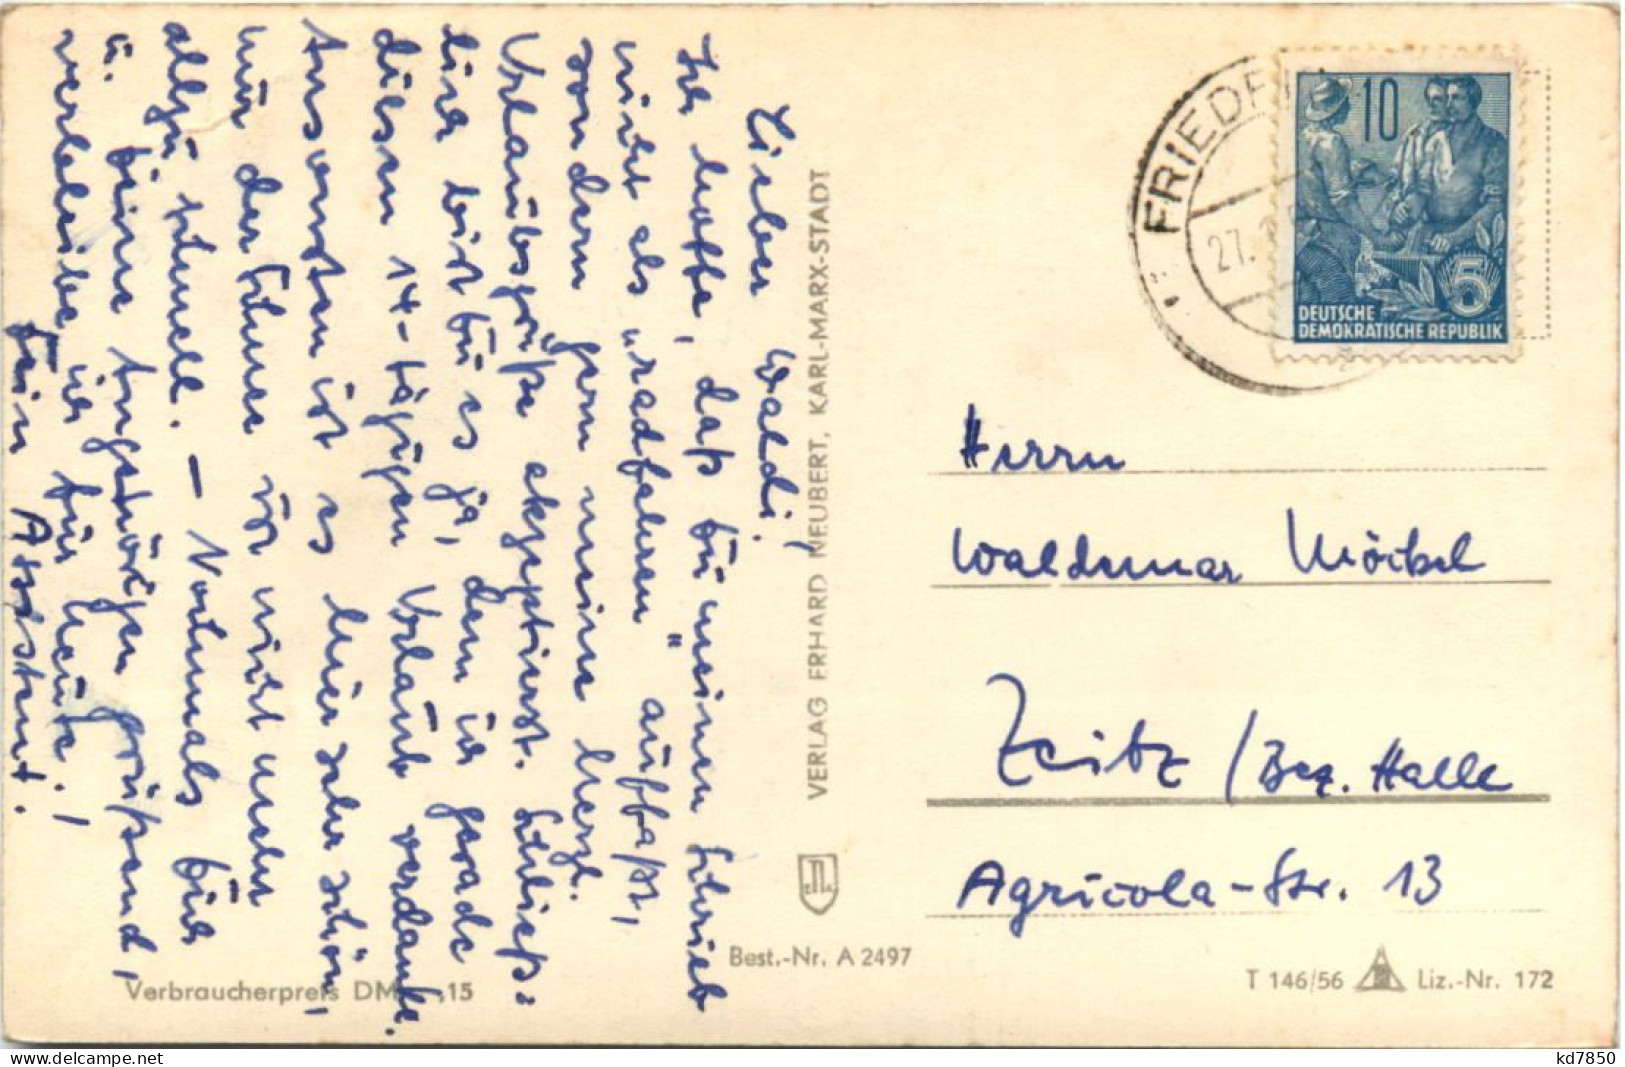 Lieber Waldi!
Ich hoffe, daß Du meinen Schrieb
nicht als "radfahren" auffaßt,
sondern gern meine herzl.
Urlaubsgrüße akzeptierst. Schließ-
lich bist Du es ja, dem ich gerade
diesen 14-tägigen Urlaub verdanke.
Ansonsten ist es hier sehr schön,
nur der Schnee ist nicht mehr
allzu schnell. - Nochmals Dich
u. Deine Angehörigen grüßend,
verbleibe ich für heute!
Dein Assistent.
VERLAG ERHARD NEUBERT, KARL-MARX-STADT
Verbraucherpreis DM ,15
Best.-Nr. A 2497
FRIEDR
27.
10
5
DEUTSCHE
DEMOKRATISCHE REPUBLIK
Herrn
Waldemar Möckel
Zeitz / Bez. Halle
Agricola-Str. 13
T 146/56 Liz.-Nr. 172
kd7850